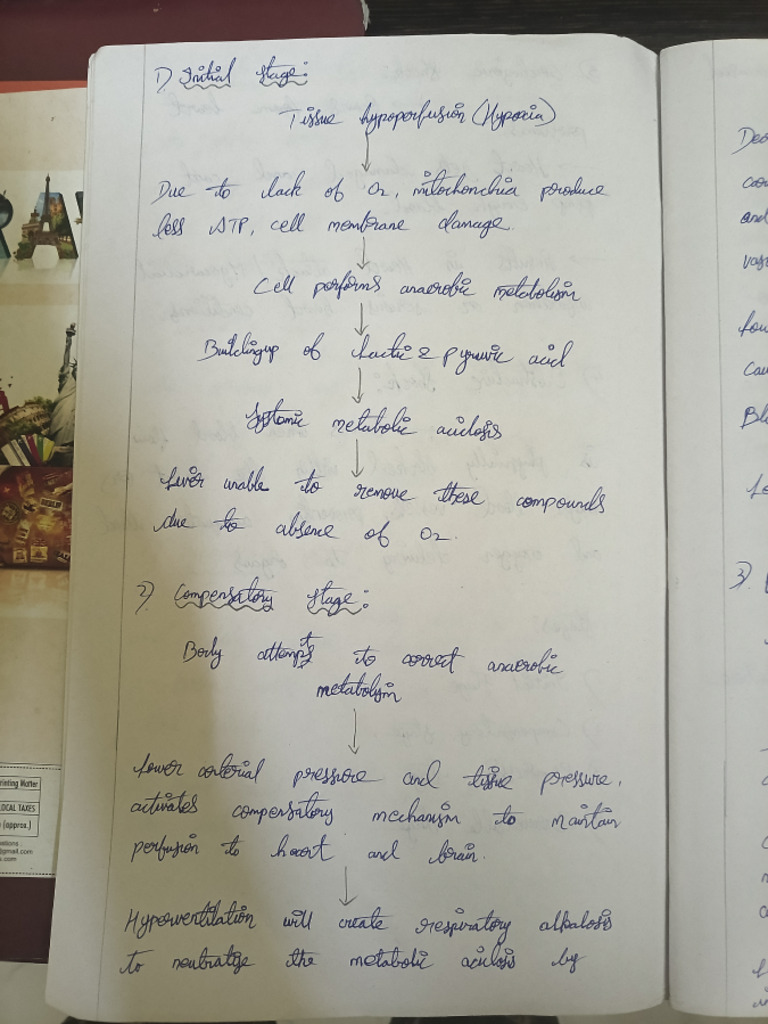 1) Initial stage:
Tissue hypoperfusion (Hypoxia)
↓
Due to lack of O2, mitochondria produce
less ATP, cell membrane damage.
↓
Cell performs anaerobic metabolism
↓
Buildingup of lactic & pyruvic acid
↓
Systemic metabolic acidosis
↓
Liver unable to remove these compounds
due to absence of O2.
2) Compensatory stage:
Body attempts to correct anaerobic
metabolism
↓
Lower arterial pressure and tissue pressure,
activates compensatory mechanism to maintain
perfusion to heart and brain.
↓
Hyperventilation will create respiratory alkalosis
to neutralize the metabolic acidosis by
and
3)
rinting Matter
LOCAL TAXES
(approx.)
gmail.com